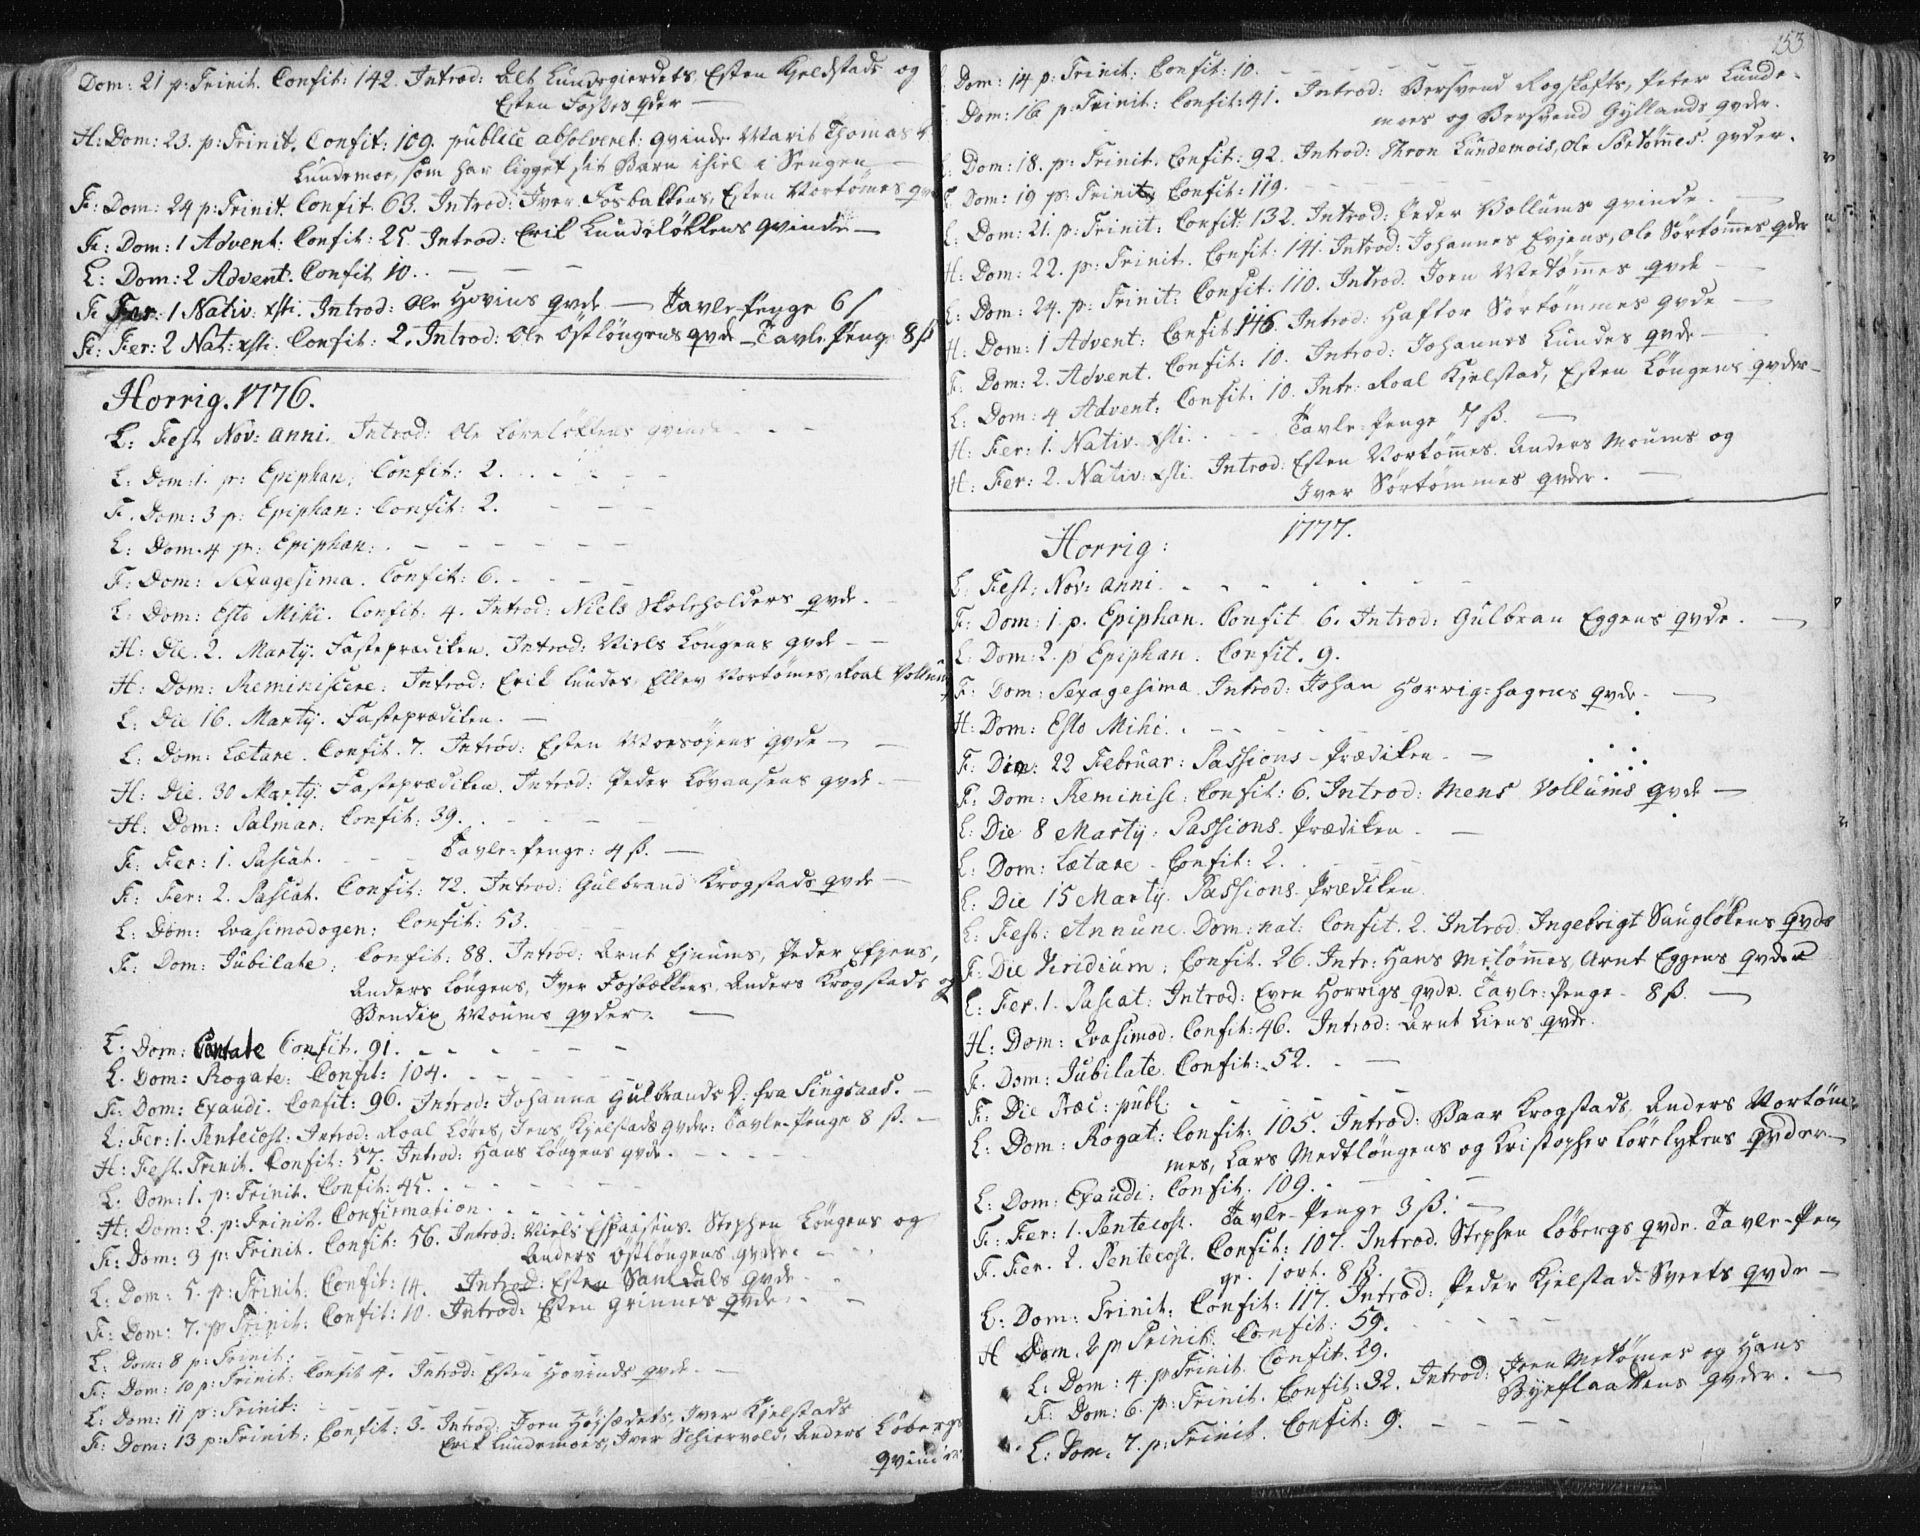 Dom: 21 p: Trinit. Confit: 142. Introd: Alt Lundsgierdets, Esten Kjelstads og
Esten Foszes qder —
H: Dom: 23. p: Trinit. Confit: 109. publice absolveret: qvinde Marit Thomasd.
Lundemoe, som har ligget sit Barn ihiel i Sengen —
F: Dom: 24 p: Trinit. Confit. 63. Introd: Iver Fosbakkens, Esten Vortømes qv
F: Dom: 1 Advent: Confit: 25. Introd: Erik Lundsløkkens qvinde —
L: Dom: 2 Advent. Confit 10. . — — —
F: Fer: 1 Nativ: Xsti. Introd: Ole Hovins qvde. — Tavle-penge 6 ſ
F: Fer: 2 Nat: Xsti. Confit: 2. Introd: Ole Østlöngens qvde — Tavle-Peng 8 ß
Horrig. 1776.
L: Fest Nov: anni. Introd: Ole Loreløkkens qvinde — - -
L: Dom: 1. p: Epiphan: Confit: 2. . . - - -
F. Dom: 3 p: Epiphan: Confit: 2. - - -
L: Dom. 4 p: Epiphan: . — — — — — —
F: Dom: Sexagesima. Confit: 6. - - -
L: Dom: Esto Mihi. Confit. 4. Introd: Niels Skoleholders qvde. —
H: Die. 2. Martij. Fasteprædiken. Introd: Niels Löngens qvde — —
H: Dom: Reminiscere: Introd: Erik Lundes, Ellev Vortømes, Roal Vollum
L: Die 16. Martij. Fasteprædiken. —
L: Dom: Lætare. Confit. 7. Introd: Esten Morsøiens qvde — —
H: Die. 30 Martij. Fasteprædiken. Introd: Peder Løvaasens qvde. —
H: Dom: Palmar: Confit: 39. . - - - -
F: Fer: 1. Pascat. - - - Tavle-penge: 4 ß. —
F: Fer: 2. Pascat. Confit: 72. Introd: Gulbrand Krogstads qvde —
L: Dom: Qvasimodogen: Confit: 53.
F: Dom: Jubilate: Confit: 88. Introd: Arnt Ejnums, Peder Efjens,
Anders Löngens, Iver Fosbækkens, Anders Krogstads og
Bendix Moums qvder. —
L: Dom: Cantate Confit. 91. - - - - -
L. Dom: Rogate: Confit: 104. - - - -
F: Dom: Exaudi. Confit: 96. Introd: Johanna Gulbrands D. fra Singsaas. —
L: Fer: 1. Pentecost: Introd: Roal Löres, Jens Kjelstads qvder: Tavle-Penge 8 ß. —
H: Fest. Trinit. Confit: 57. Introd: Hans Löngens qvde. - - - - -
L: Dom: 1. p: Trinit. Confit: 45. - - - - -
H: Dom: 2. p: Trinit. Confirmation. - - - -
F: Dom: 3 p: Trinit. Confit: 56. Introd: Niels Espaasens. Stephen Löngens og
Anders Østlöngens qvder. —
L: Dom: 5. p: Trinit: Confit: 14. Introd: Esten Samdals qvde - -
F: Dom: 7. p Trinit: Confit: 10. Introd: Esten Grinnes qvde. - —
L: Dom: 8 p: Trinit: - - - - -
F: Dom: 10 p: Trinit: Confit 4. Introd: Esten Hovinds qvde. —
L: Dom: 11 p: Trinit: - - - -
F: Dom: 13 p: Trinit: Confit: 3. Introd: Joen Højsædets, Iver Kjelstads
Erik Lundemoes, Iver Schiervold, Anders Löbergs
qvinder
153
Dom: 14 p: Trinit: Confit: 10. - - - - -
Dom: 16 p: Trinit: Confit: 41. Introd: Bersvend Rogstofts, Peter Lunde-
moes og Bersvend Gyllands qvder.
L: Dom: 18. p: Trinit. Confit: 92. Introd: Thron Lundemois, Ole Sörtømes qvder.
F: Dom: 19 p: Trinit: Confit: 119. - - - -
L: Dom: 21. p: Trinit: Confit: 132. Introd: Peder Vollums qvinde. —
H: Dom: 22. p: Trinit. Confit: 141. Introd: Johannes Evjens, Ole Sørtømmes qder
L: Dom: 24. p: Trinit: Confit: 110. Introd. Joen Metømmes qvde —
H: Dom: 1 Advent: Confit 146. Introd: Haftor Sörtömmes qvde —
F: Dom: 2. Advent. Confit: 10. Introd: Johannes Lundes qvde —
L: Dom: 4 Advent: Confit: 10. Intr: Roal Kjelstad, Esten Löngens qvder —
H: Fer: 1. Nativ. Xsti. . - - - Tavle-Penge 7 ß. —
H: Fer: 2. Nativ: Xsti. Introd: Esten Vortømes. Anders Moums og
Iver Sörtömmes qvder. —
Horrig: 1777.
L: Fest: Nov: anni. - - - - -
F: Dom: 1 p. Epiphan. Confit 6. Introd: Gulbran Eggens qvde. —
L: Dom: 2. p Epiphan. Confit. 9.
F: Dom: Sexagesima. Introd: Johan Horrig-hagens qvde. —
H: Dom: Esto Mihi. - - - - -
F: Die: 22 Februar: Passions-Prædiken. —
F: Dom: Reminisc: Confit: 6. Introd: Mens Vollums qvde —
L: Die 8 Martij: Passions-Prædiken. —
L: Dom: Lætare - Confit: 2. - - -
L: Die 15 Martij. Passions-Prædiken.
L: Fest: Annunc. Dom: nat: Confit. 2. Introd: Ingebrigt Saugløkens qvde
F: Die Viridium: Confit. 26. Intr: Hans Metömmes, Arnt Eggens qvder
L: Fer. 1. Pascat: Introd: Even Horrigs qvde. Tavle-Penge - 8 ß. —
H: Dom: Qvasimod: Confit: 46. Introd: Arnt Liens qvde.
F. Dom: Jubilate. Confit: 52. - —
F: Die Præc: publ: - - - - -
L: Dom: Rogat: Confit: 105. Introd: Baar Krogstads, Anders Vortöm-
mes, Lars Medtlöngens og Cristopher Lörelykens qvder —
L: Dom: Exaudi: Confit. 109. - - - -
F: Fer: 1. Pentecost. Tavle-Penge 3 ß. —
F. Fer. 2. Pentecost. Confit: 107. Introd. Stephen Löbergs qvde. Tavle-Pen
ge. 1 ort. 8 ß.
L: Dom: Trinit: Confit: 117. Introd: Peder Kjelstad-Sveets qvde —
H Dom. 2 p Trinit: Confit: 59. - - - -
L: Dom: 4. p Trinit. Confit. 29.
F: Dom: 6. p: Trinit. Confit: 32. Introd: Joen Metømes og Hans
Byeflaattens qvder. —
L: Dom. 7. p: Trinit. Confit: 9. - - - -